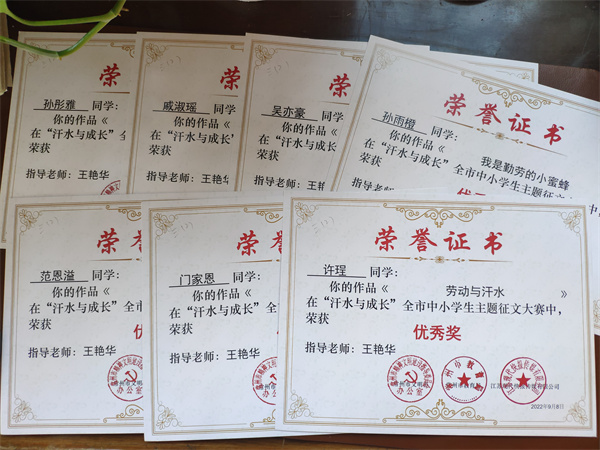 荣
孙彤雅 同学:
你的作品《
在“汗水与成长”全
荣获
指导老师: 王艳华
荣
戚淑瑶 同学
你的作品《
在“汗水与成长”
荣获
指导老师: 王艳华
荣
吴亦豪 同学:
你的作品《
在“汗水与成长”
荣获
指导老师: 王艳华
荣誉证书
孙雨橙 同学:
你的作品《 我是勤劳的小蜜蜂
在“汗水与成长”全市中小学生主题征文大赛中
荣获
指导老师: 王艳华
荣
范恩溢 同学:
你的作品《
在“汗水与成长”全市
荣获
优
指导老师: 王艳华
办公室
荣
门家恩 同学:
你的作品《
在“汗水与成长”全市
荣获
指导老师: 王艳华
荣誉证书
许瑆 同学:
你的作品《 劳动与汗水 》
在“汗水与成长”全市中小学生主题征文大赛中,
荣获
优秀奖
指导老师: 王艳华
办公室
2022年9月8日